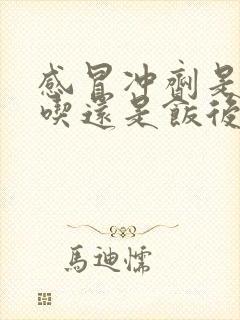 感冒冲劑是
喫還是飯後
馬迪懦